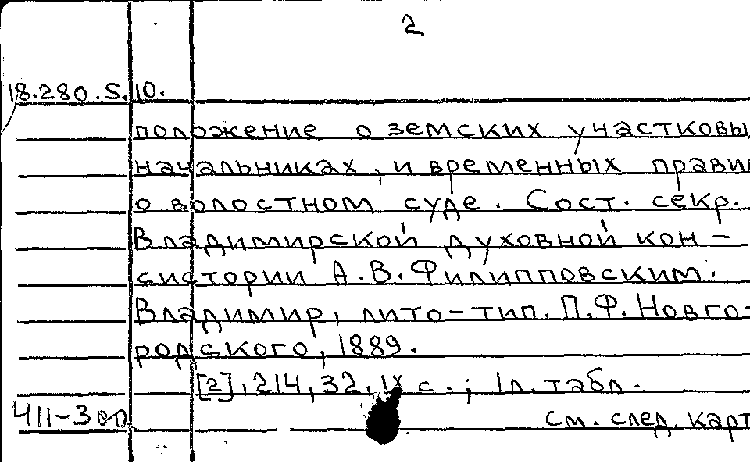 2
18.280.S.10.
положение о земских участковы
начальниках, и временных прави
о волостном суде. Сост. секр.
Владимирской духовной кон-
систории А.В.Филипповским.
Владимир, лито-тип. П.Ф. Новго-
родского, 1889.
[2], 214, 32, IX с.; 1 л. табл.
411-300
см. след. карт